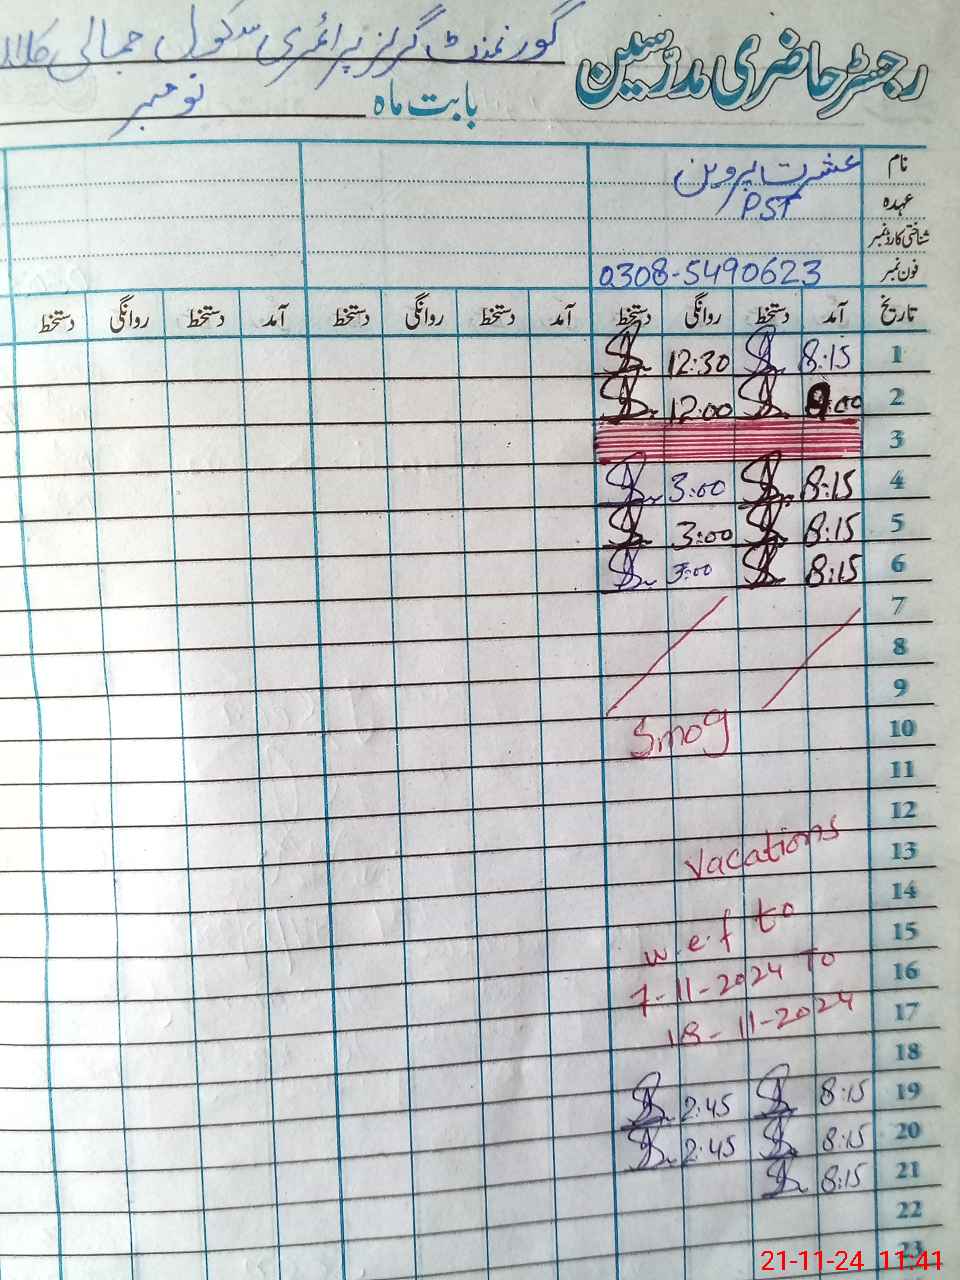 رجسٹر حاضری مدرسین گورنمنٹ گرلز پرائمری سکول جمالی
بابت ماہ نومبر
نام عشرت پروین
عہدہ PST
شناختی کارڈ نمبر
فون نمبر 0308-5490623
تاریخ آمد دستخط روانگی دستخط آمد دستخط روانگی دستخط آمد دستخط روانگی دستخط
1 8:15 12:30
2 9:00 12:00
3
4 8:15 3:00
5 8:15 3:00
6 8:15 3:00
7
8
9
10 Smog
11
12
13 Vacations
14
15 w.e.f to
16 7-11-2024 To
17 18-11-2024
18
19 8:15 2:45
20 8:15 2:45
21 8:15
22
23
21-11-24 11:41